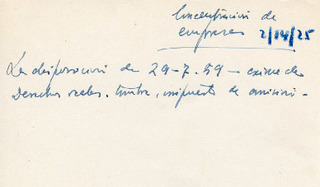 Concentración de
empresas 2/14/25
La disposición de 29-7-59 — exime de
Derechos reales. timbre, impuesto de emisión -